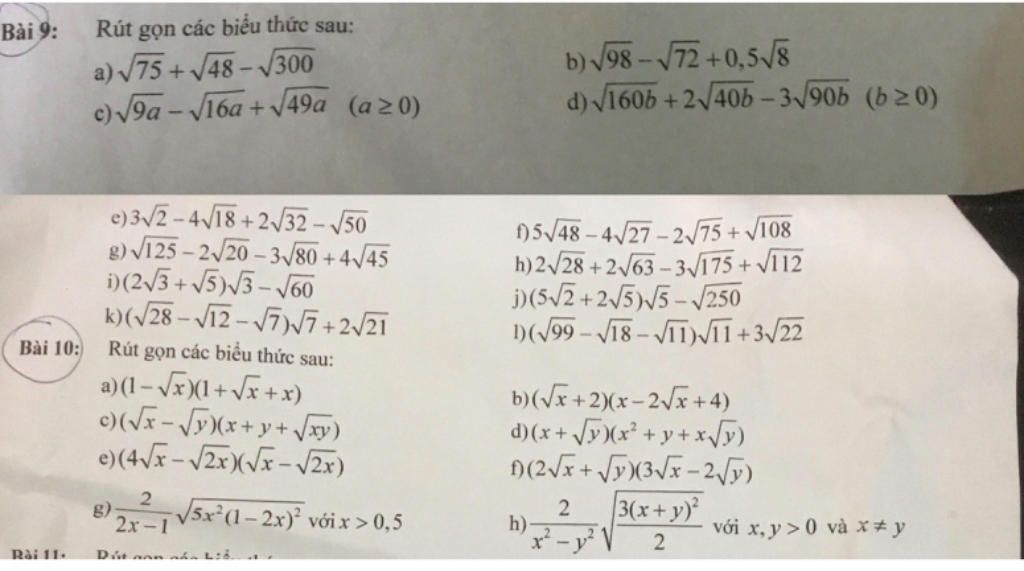 Bài 9: Rút gọn các biểu thức sau:
a) √75 + √48 − √300 b) √98 − √72 + 0,5√8
c) √9a − √16a + √49a (a ≥ 0) d) √160b + 2√40b − 3√90b (b ≥ 0)
e) 3√2 − 4√18 + 2√32 − √50 f) 5√48 − 4√27 − 2√75 + √108
g) √125 − 2√20 − 3√80 + 4√45 h) 2√28 + 2√63 − 3√175 + √112
i) (2√3 + √5)√3 − √60 j) (5√2 + 2√5)√5 − √250
k) (√28 − √12 − √7)√7 + 2√21 l) (√99 − √18 − √11)√11 + 3√22
Bài 10: Rút gọn các biểu thức sau:
a) (1 − √x)(1 + √x + x) b) (√x + 2)(x − 2√x + 4)
c) (√x − √y)(x + y + √xy) d) (x + √y)(x² + y + x√y)
e) (4√x − √2x)(√x − √2x) f) (2√x + √y)(3√x − 2√y)
g) 2/(2x − 1) √(5x²(1 − 2x)²) với x > 0,5 h) 2/(x² − y²) √(3(x + y)²/2) với x, y > 0 và x ≠ y
Bài 11: Rút gọn các